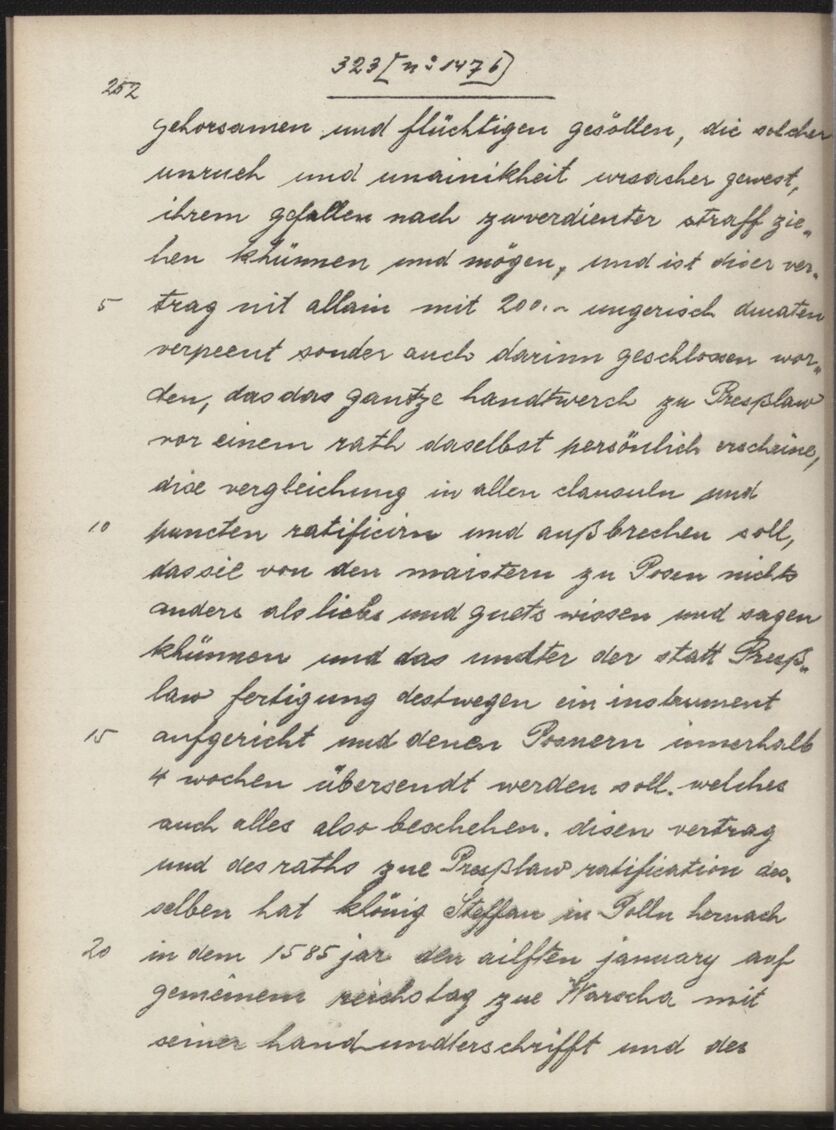 323 [nº 1476]
252
gehorsamen und flüchtigen gesöllen, die solcher
unruch und unainikheit ursacher gewest,
ihrem gefallen nach zuverdienter straff zie„
hen khünnen und mögen, und ist diser ver„
5 trag nit allain mit 200.– ungerisch ducaten
verpeent sonder auch darinn geschlossen wor„
den, das das gantze handtwerch zu Presßlaw
vor einem rath daselbst persönlich erscheine,
dise vergleichung in allen clausuln und
10 puncten ratificirn und außbrechen soll,
das sie von den maistern zu Posen nichts
anders als liebs und guets wissen und sagen
khünnen und das undter der statt Preß„
law fertigung destwegen ein instrument
15 aufgericht und denen Posnern innerhalb
4 wochen übersendt werden soll. welches
auch alles also beschehen. disen vertrag
und des raths zue Preßlaw ratification des„
selben hat khönig Steffan in Polln hernach
20 in dem 1585 jar den ailften january auf
gemeinem reichstag zue Warscha mit
seiner hand undterschrifft und des